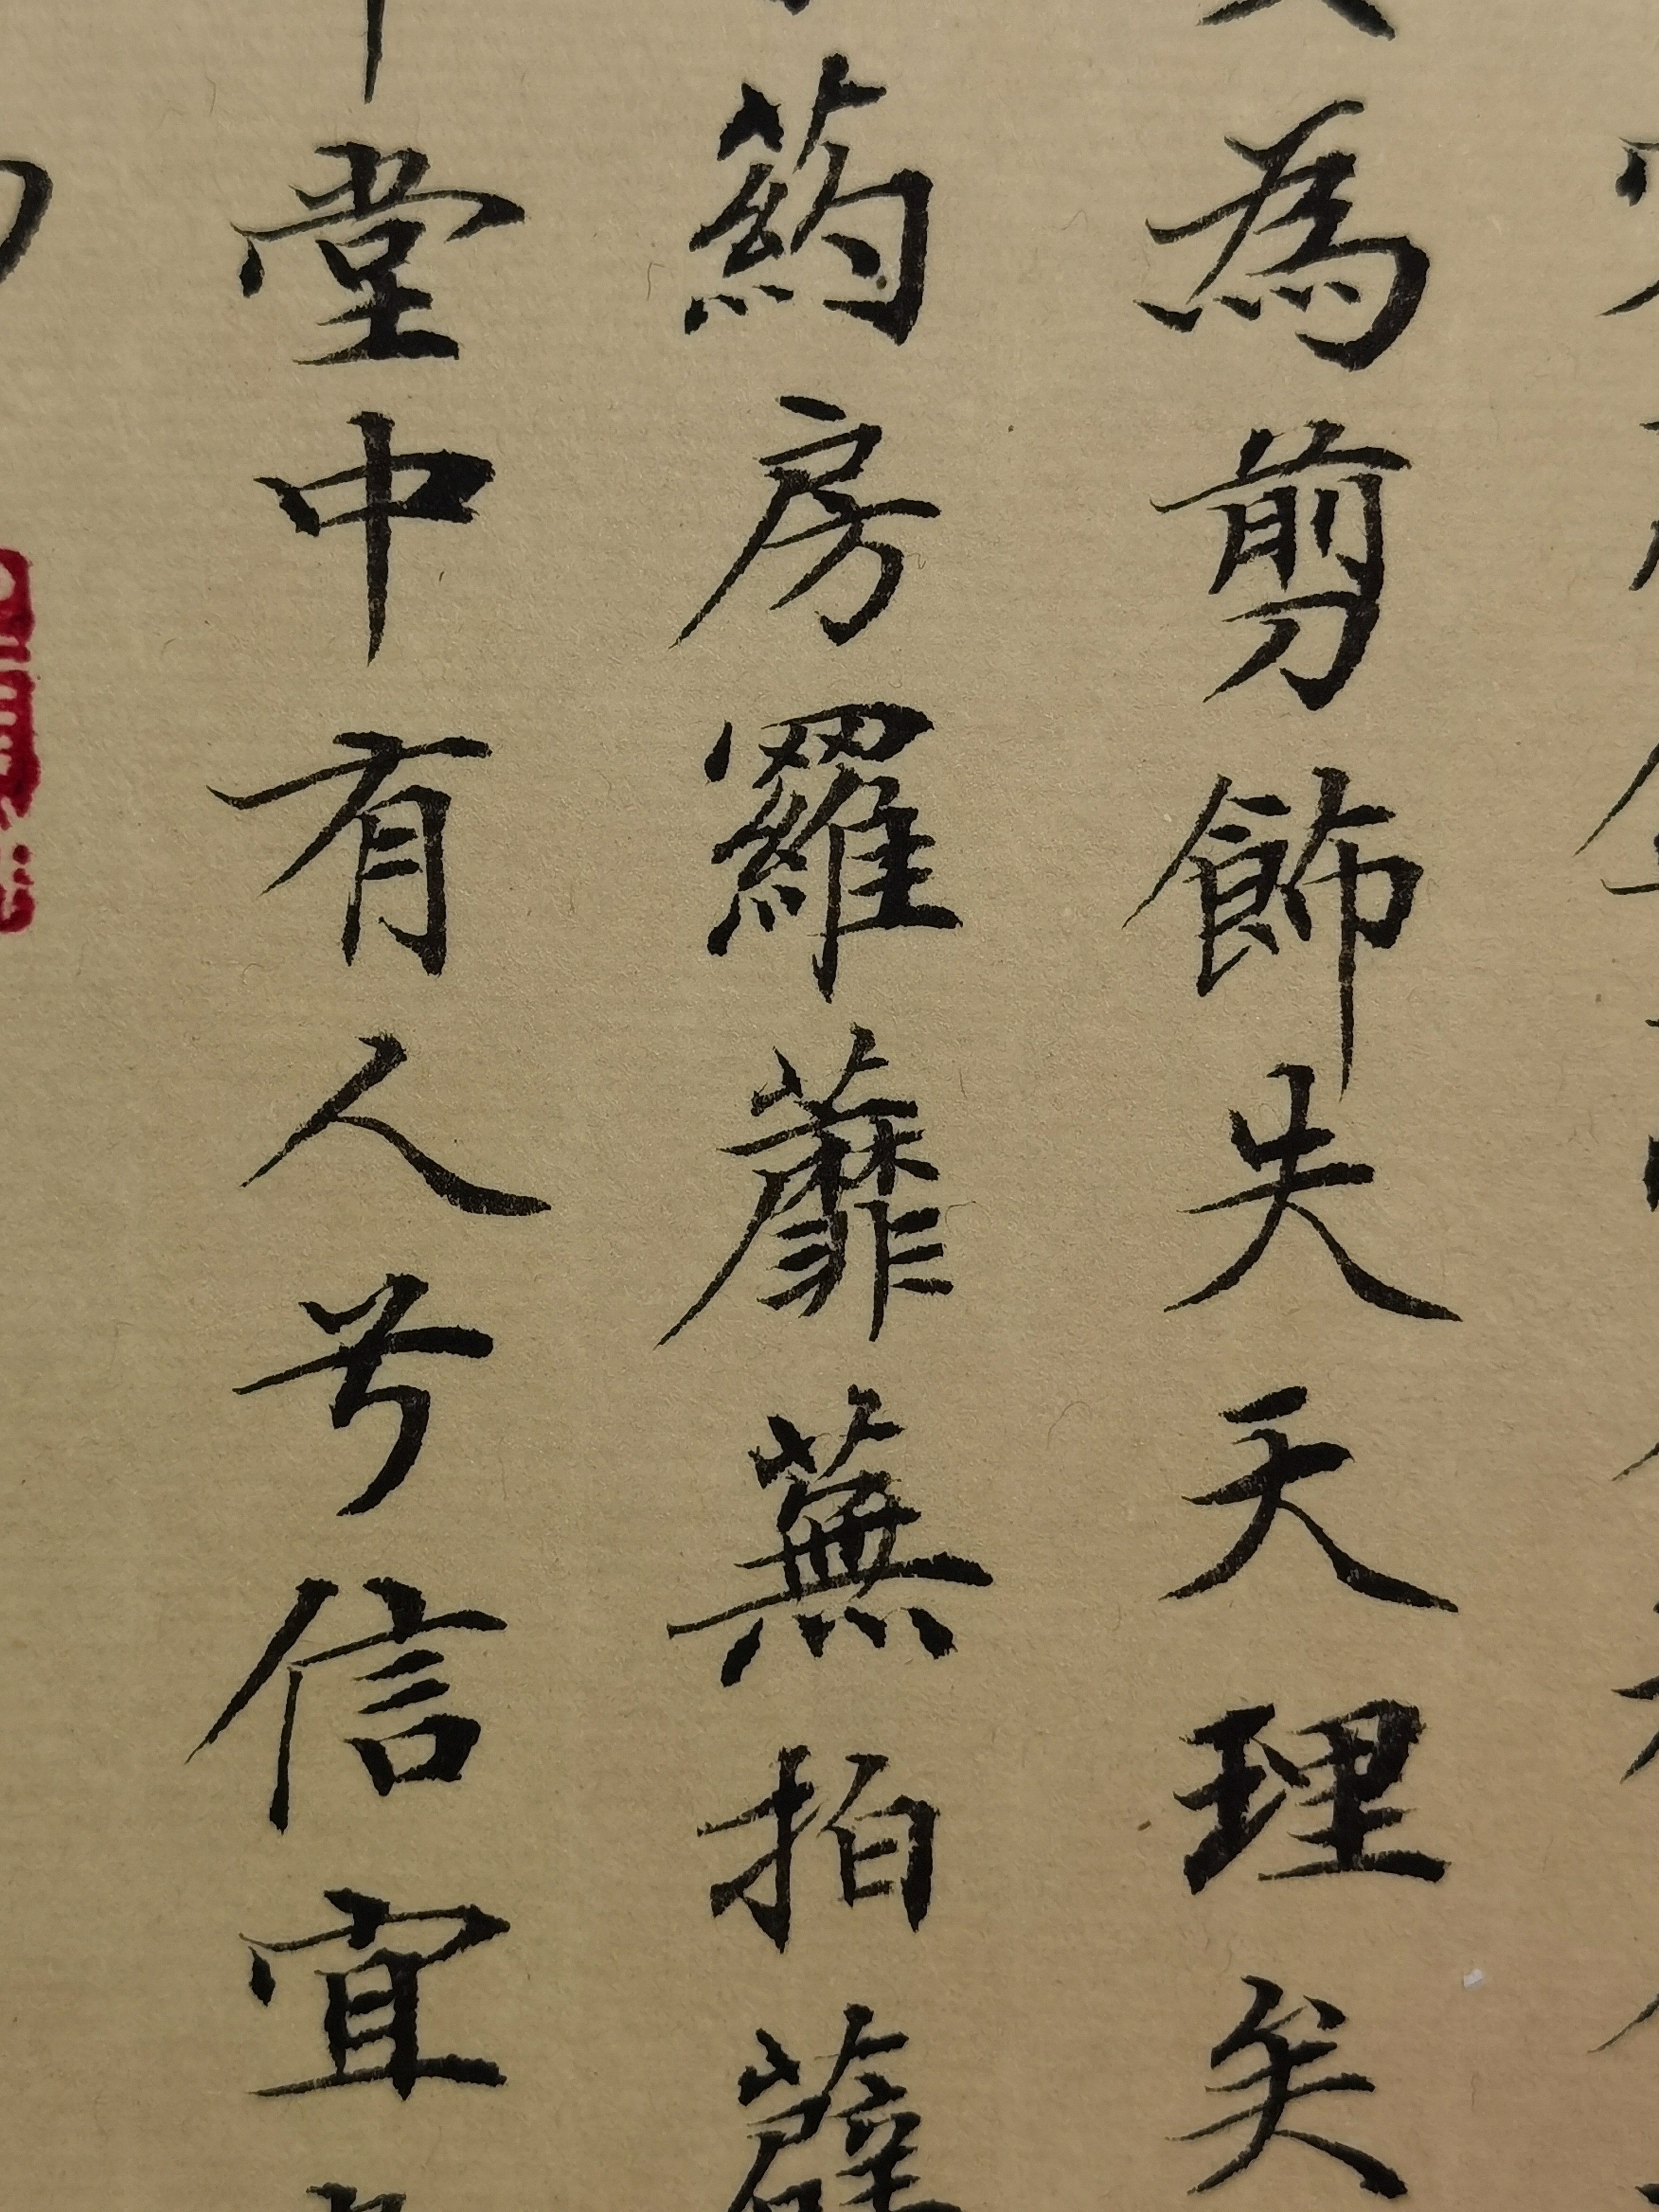 為剪飾失天理矣
葯房羅蘼蕪拍薜
堂中有人兮信宜